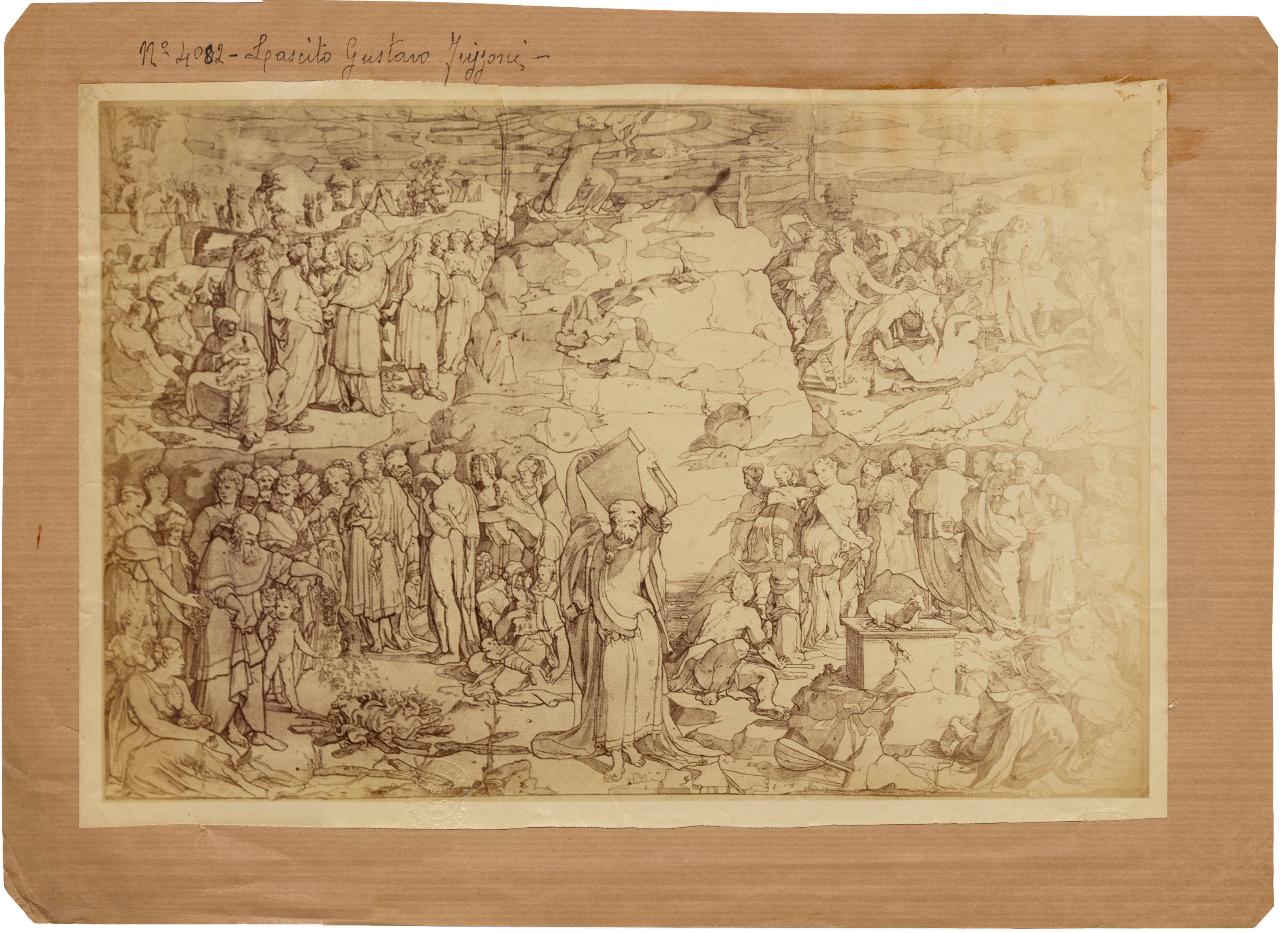 Nº 4082 - Lascito Gustavo Frizzoni -